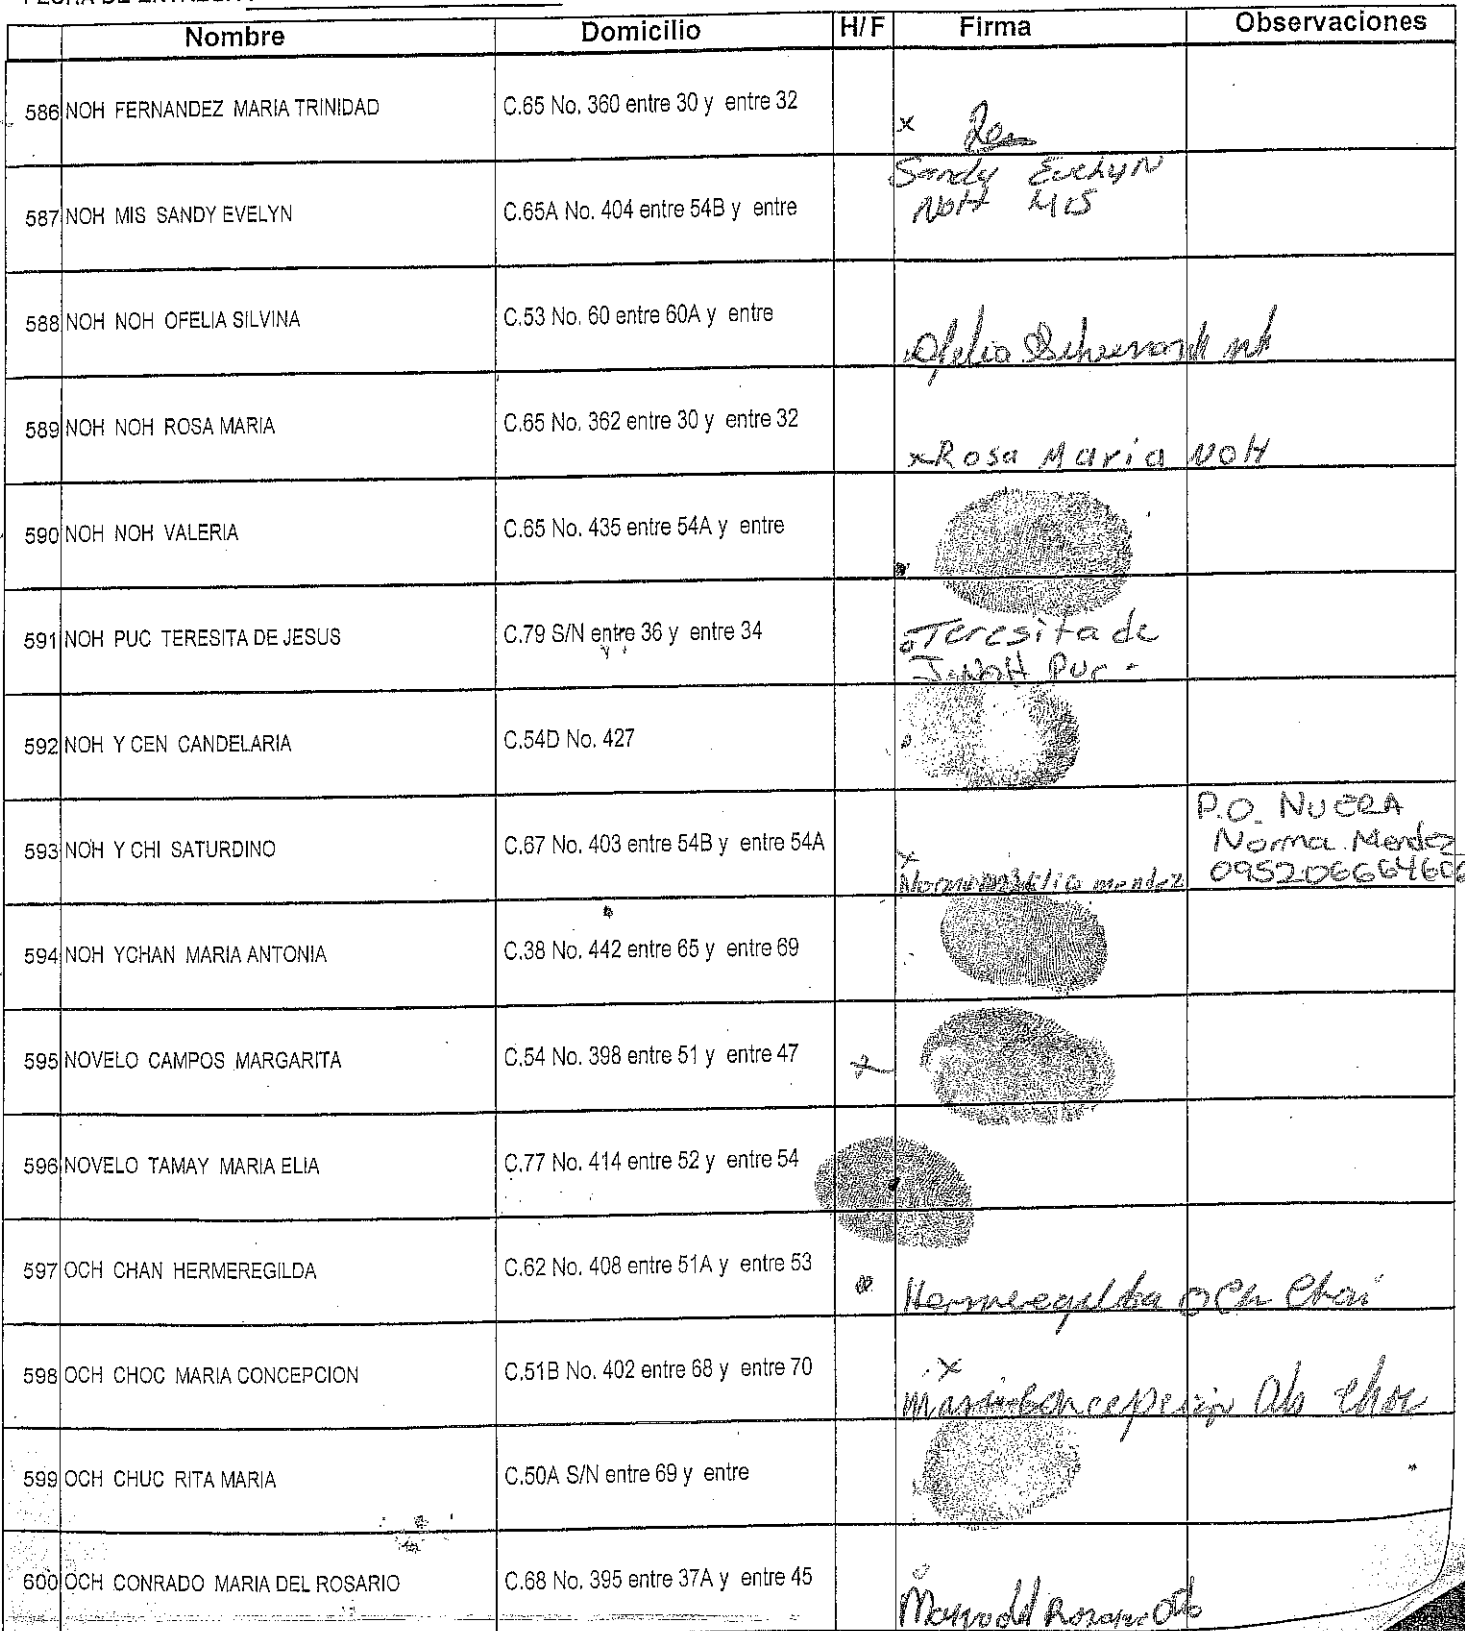 FECHA DE ENTREGA:
Nombre Domicilio H/F Firma Observaciones
586 NOH FERNANDEZ MARIA TRINIDAD C.65 No. 360 entre 30 y entre 32 x
587 NOH MIS SANDY EVELYN C.65A No. 404 entre 54B y entre Sandy Evelyn
NOH MIS
588 NOH NOH OFELIA SILVINA C.53 No. 60 entre 60A y entre Ofelia
589 NOH NOH ROSA MARIA C.65 No. 362 entre 30 y entre 32 x Rosa Maria NOH
590 NOH NOH VALERIA C.65 No. 435 entre 54A y entre
591 NOH PUC TERESITA DE JESUS C.79 S/N entre 36 y entre 34 Teresita de
J. NOH Puc
592 NOH Y CEN CANDELARIA C.54D No. 427
593 NOH Y CHI SATURDINO C.67 No. 403 entre 54B y entre 54A x mendez P.O. NUERA
Norma Mendez
594 NOH YCHAN MARIA ANTONIA C.38 No. 442 entre 65 y entre 69
595 NOVELO CAMPOS MARGARITA C.54 No. 398 entre 51 y entre 47 x
596 NOVELO TAMAY MARIA ELIA C.77 No. 414 entre 52 y entre 54
597 OCH CHAN HERMEREGILDA C.62 No. 408 entre 51A y entre 53 Hermeregilda Och Chan
598 OCH CHOC MARIA CONCEPCION C.51B No. 402 entre 68 y entre 70 x
Maria Concepcion Och Choc
599 OCH CHUC RITA MARIA C.50A S/N entre 69 y entre
600 OCH CONRADO MARIA DEL ROSARIO C.68 No. 395 entre 37A y entre 45 Maria del Rosario Och